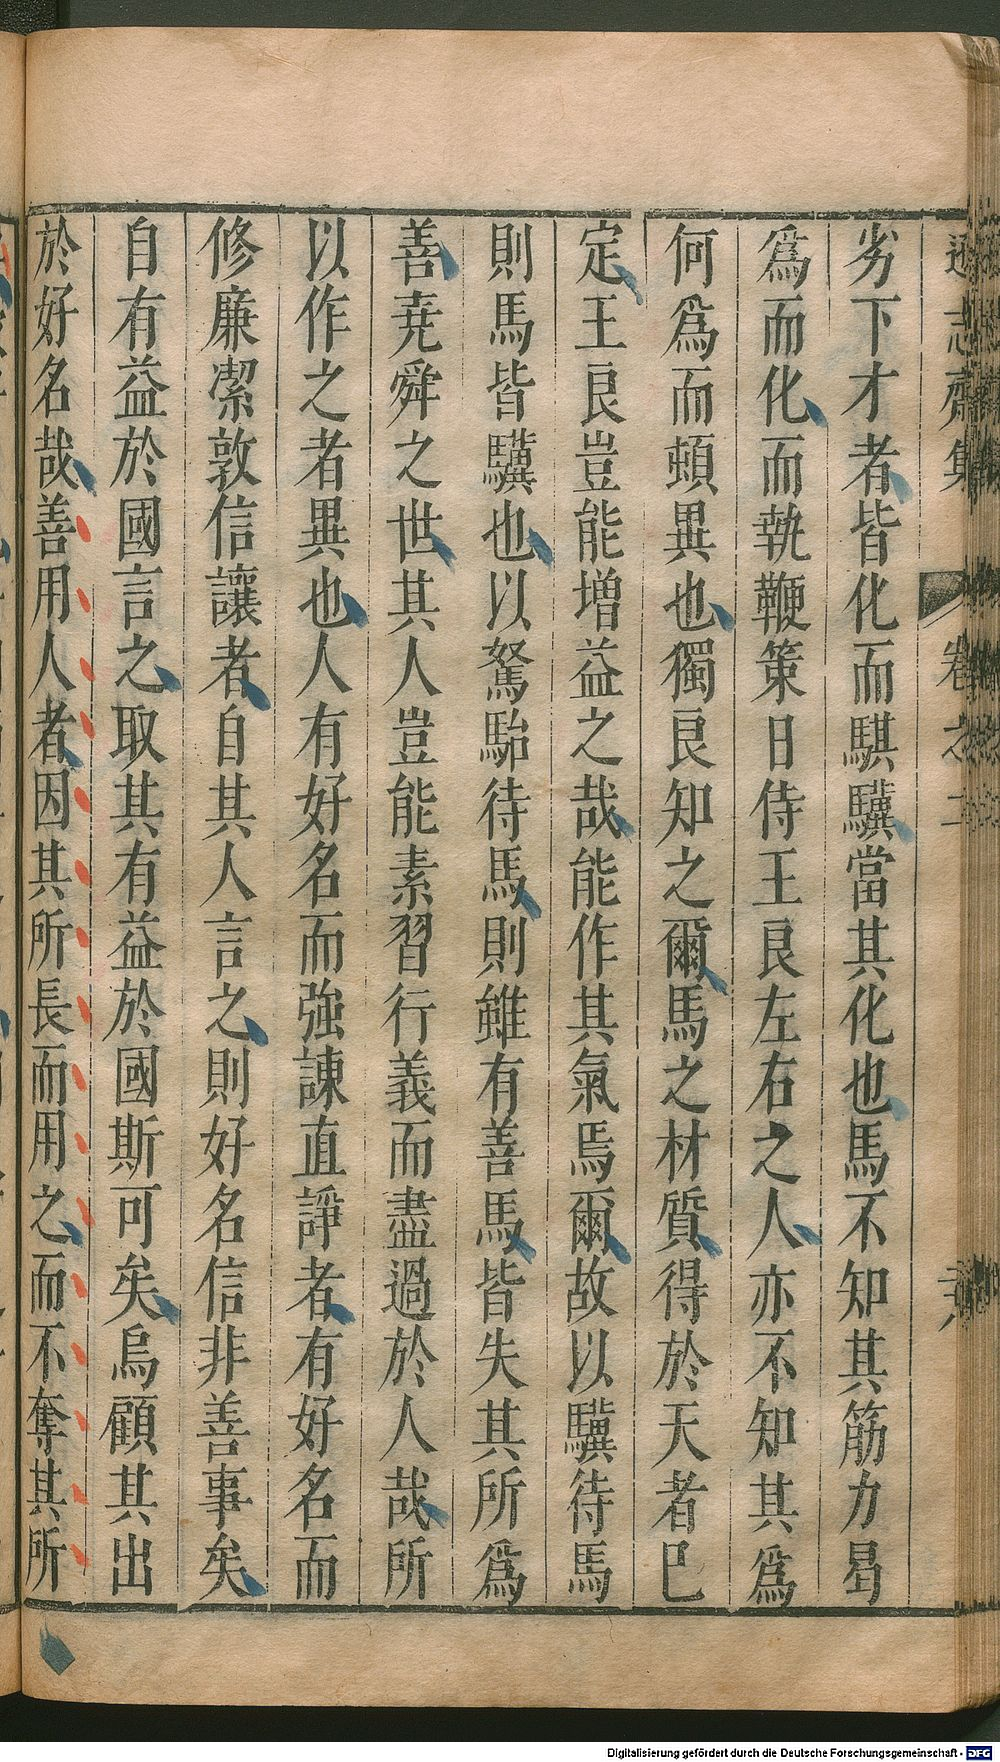 遜志齋集 卷之二 二八
劣下才者皆化而騏驥當其化也馬不知其筋力曷
爲而化而執鞭策日侍王良左右之人亦不知其爲
何爲而頓異也獨良知之爾馬之材質得於天者巳
定王良豈能增益之哉能作其氣焉爾故以驥待馬
則馬皆驥也以駑駘待馬則雖有善馬皆失其所爲
善堯舜之世其人豈能素習行義而盡過於人哉所
以作之者異也人有好名而強諫直諍者有好名而
修廉潔敦信讓者自其人言之則好名信非善事矣
自有益於國言之取其有益於國斯可矣烏顧其出
於好名哉善用人者因其所長而用之而不奪其所
Digitalisierung gefördert durch die Deutsche Forschungsgemeinschaft - DFG